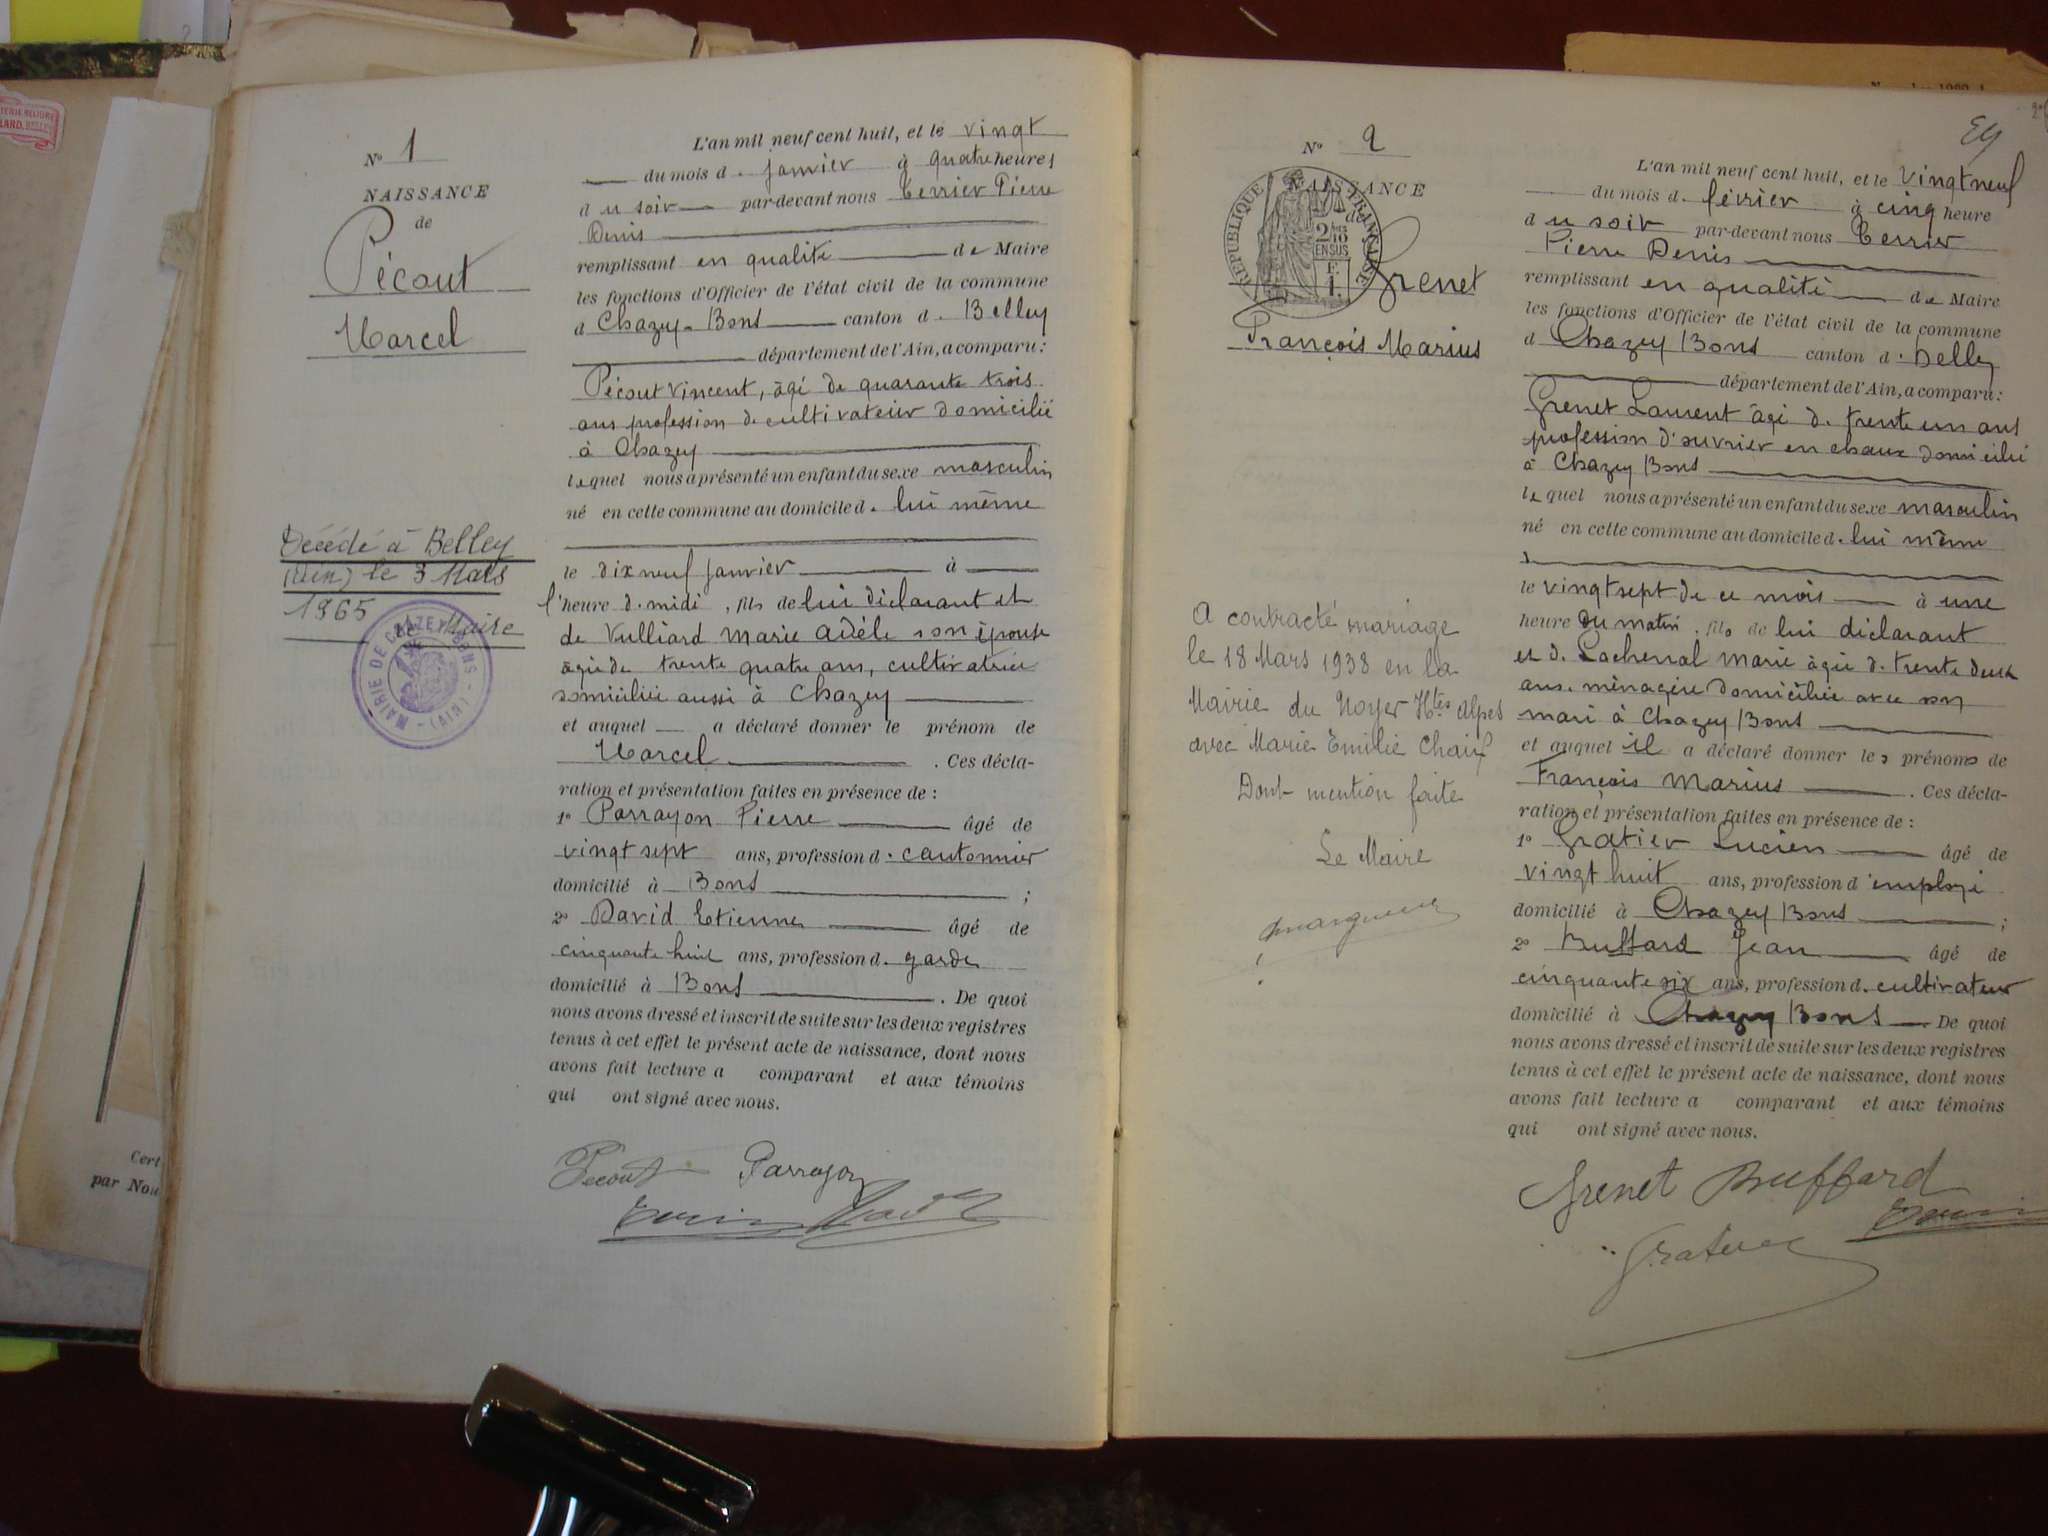 Nº 1
NAISSANCE
de
Pécout
Marcel
Décédé à Belley
(Ain) le 3 Mars
1965
Le Maire
MAIRIE DE CHAZEY-BONS (AIN)
L'an mil neuf cent huit, et le vingt
du mois d. janvier à quatre heures
du soir par-devant nous Terrier Pierre
Denis
remplissant en qualité de Maire
les fonctions d'Officier de l'état civil de la commune
d Chazey-Bons canton d. Belley
département de l'Ain, a comparu:
Pécout Vincent, âgé de quarante trois
ans profession de cultivateur domicilié
à Chazey
lequel nous a présenté un enfant du sexe masculin
né en cette commune au domicile d. lui même
le dix neuf janvier à
l'heure d. midi, fils de lui déclarant et
de Vulliard Marie Adèle son épouse
âgée de trente quatre ans, cultivatrice
domiciliée aussi à Chazey
et auquel a déclaré donner le prénom de
Marcel. Ces décla-
ration et présentation faites en présence de :
1º Parrayon Pierre âgé de
vingt sept ans, profession d. cantonnier
domicilié à Bons ;
2º David Etienne âgé de
cinquante huit ans, profession d. garde
domicilié à Bons. De quoi
nous avons dressé et inscrit de suite sur les deux registres
tenus à cet effet le présent acte de naissance, dont nous
avons fait lecture a comparant et aux témoins
qui ont signé avec nous.
Pecout Parrayon
Nº 2
NAISSANCE
de
RÉPUBLIQUE FRANÇAISE
2/10
EN SUS
Grenet
François Marius
A contracté mariage
le 18 Mars 1938 en la
Mairie du Noyer Htes Alpes
avec Marie Emilie Chaix
Dont mention faite
Le Maire
L'an mil neuf cent huit, et le vingt neuf
du mois d. février à cinq heure
du soir par-devant nous Terrier
Pierre Denis
remplissant en qualité de Maire
les fonctions d'Officier de l'état civil de la commune
d Chazey Bons canton d. Belley
département de l'Ain, a comparu:
Grenet Laurent âgé d. trente un ans
profession d'ouvrier en chaux domicilié
à Chazey Bons
lequel nous a présenté un enfant du sexe masculin
né en cette commune au domicile d. lui même
le vingt sept de ce mois à une
heure du matin, fils de lui déclarant
et d. Lachenal Marie âgée d. trente deux
ans. ménagère domiciliée avec son
mari à Chazey Bons
et auquel il a déclaré donner les prénoms de
François Marius. Ces décla-
ration et présentation faites en présence de :
1º Gratier Lucien âgé de
vingt huit ans, profession d'employé
domicilié à Chazey Bons ;
2º Buffard Jean âgé de
cinquante six ans, profession d. cultivateur
domicilié à Chazey Bons. De quoi
nous avons dressé et inscrit de suite sur les deux registres
tenus à cet effet le présent acte de naissance, dont nous
avons fait lecture a comparant et aux témoins
qui ont signé avec nous.
Grenet Buffard
Gratier
Cert
par Nou